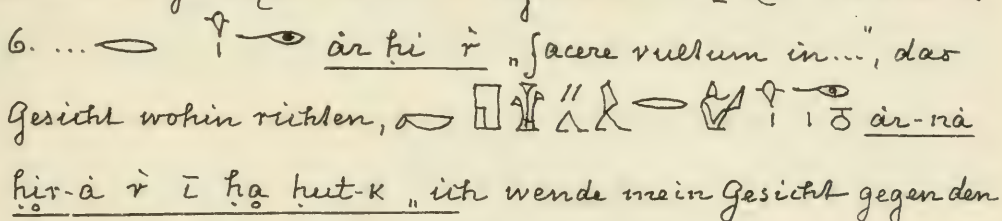 6. ... 𓂋 𓁷𓏤 𓁹 ȧr ḥi r̀ „facere vultum in...", das
Gesicht wohin richten, ȧr-nȧ
ḥir-ȧ r̀ ī ḥa ḥut-K „ich wende mein Gesicht gegen den